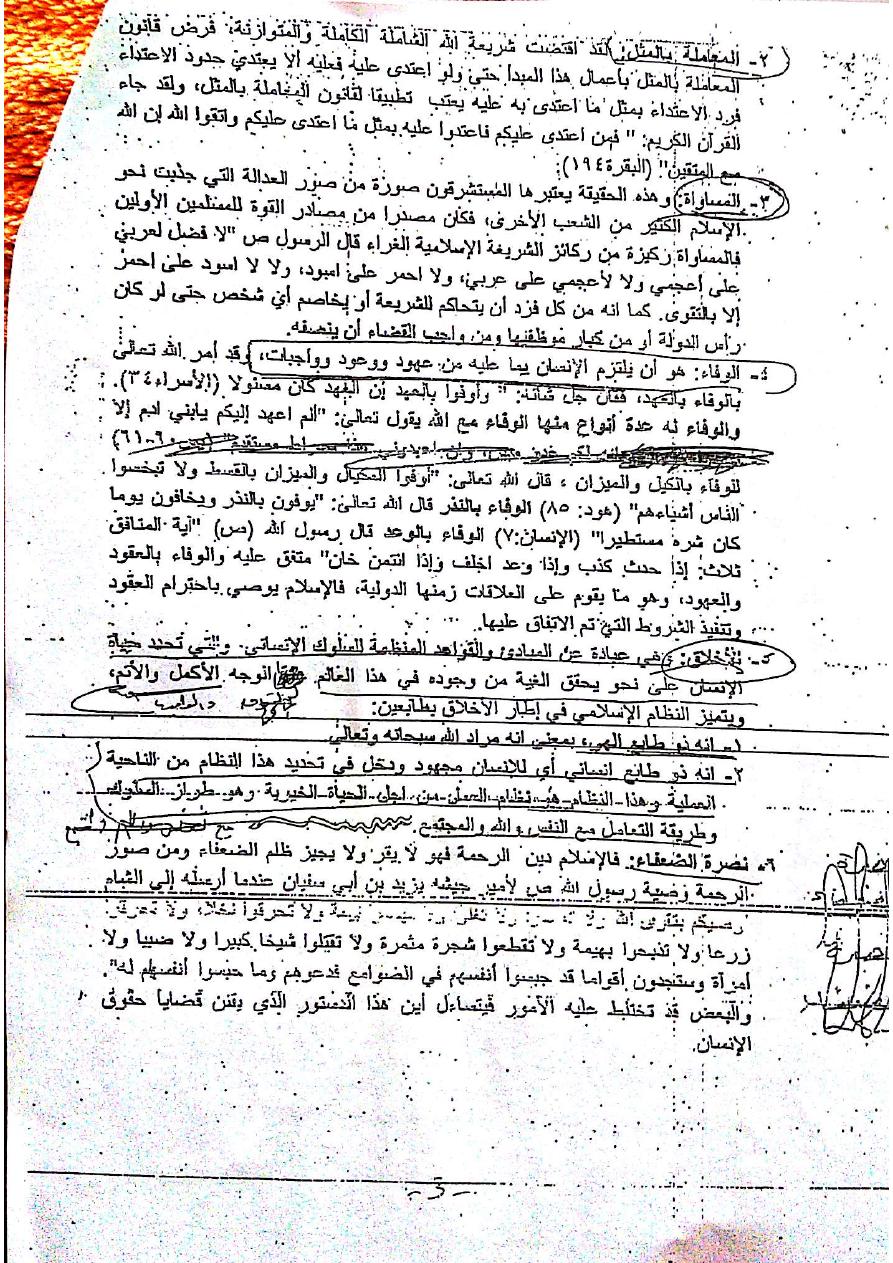 ٢- المعاملة بالمثل: لقد اقتضت شريعة الله الشاملة الكاملة والمتوازنة، فرض قانون
المعاملة بالمثل بأعمال هذا المبدا حتى ولو اعتدى عليه فعليه ألا يعتدي حدود الاعتداء
فرد الاعتداء بمثل ما اعتدى به عليه يعتب تطبيقا لقانون المعاملة بالمثل، ولقد جاء
القرآن الكريم: " فمن اعتدى عليكم فاعتدوا عليه بمثل ما اعتدى عليكم واتقوا الله إن الله
مع المتقين" (البقرة١٩٤).
٣- المساواة: وهذه الحقيقة يعتبرها المستشرقون صورة من صور العدالة التي جذبت نحو
الإسلام الكثير من الشعب الأخرى، فكان مصدرا من مصادر القوة للمسلمين الأولين
فالمساواة ركيزة من ركائز الشريعة الإسلامية الغراء قال الرسول ص "لا فضل لعربي
على أعجمي ولا لأعجمي على عربي، ولا احمر على اسود، ولا لا اسود على احمر
إلا بالتقوى. كما انه من كل فرد أن يتحاكم للشريعة أو يخاصم أي شخص حتى لو كان
رأس الدولة أو من كبار موظفيها ومن واجب القضاء أن ينصفه.
٤- الوفاء: هو أن يلتزم الإنسان بما عليه من عهود ووعود وواجبات، وقد أمر الله تعالى
بالوفاء بالعهد، فقال جل شانه: " وأوفوا بالعهد إن العهد كان مسئولا (الأسراء٣٤).
والوفاء له عدة أنواع منها الوفاء مع الله يقول تعالى: "ألم اعهد إليكم يابني ادم إلا
لكم عدو مبين، وان اعبدوني هذا صراط مستقيم" (يس٦٠-٦١)
للوفاء بالكيل والميزان ، قال الله تعالى: "أوفوا المكيال والميزان بالقسط ولا تبخسوا
الناس أشياءهم" (هود: ٨٥) الوفاء بالنذر قال الله تعالى: "يوفون بالنذر ويخافون يوما
كان شره مستطيرا" (الإنسان:٧) الوفاء بالوعد قال رسول الله (ص) "آية المنافق
ثلاث: إذا حدث كذب وإذا وعد اخلف وإذا ائتمن خان" متفق عليه والوفاء بالعقود
والعهود، وهو ما يقوم على العلاقات زمنها الدولية، فالإسلام يوصي باحترام العقود
وتنفيذ الشروط التي تم الاتفاق عليها.
٥- الأخلاق: هي عبارة عن المبادئ والقواعد المنظمة للسلوك الإنساني. والتي تحدد حياة
الإنسان على نحو يحقق الغية من وجوده في هذا العالم الوجه الأكمل والأتم،
ويتميز النظام الإسلامي في إطار الأخلاق بطابعين:
١- انه ذو طابع الهي، بمعنى انه مراد الله سبحانه وتعالى
٢- انه ذو طابع انساني أي للإنسان مجهود ودخل في تحديد هذا النظام من الناحية
العملية وهذا النظام هو نظام العمل من اجل الحياة الخيرية وهو طراز السلوك
وطريقة التعامل مع النفس والله والمجتمع.
٦- نصرة الضعفاء: فالإسلام دين الرحمة فهو لا يقر ولا يجيز ظلم الضعفاء ومن صور
الرحمة وصية رسول الله ص لأمير جيشه يزيد بن أبي سفيان عندما أرسله إلي الشام
ولا تحرقوا نخلا، ولا
زرعا ولا تذبحوا بهيمة ولا تقطعوا شجرة مثمرة ولا تقتلوا شيخا كبيرا ولا صبيا ولا
امرأة وستجدون أقواما قد حبسوا أنفسهم في الصوامع فدعوهم وما حبسوا أنفسهم له".
والبعض قد تختلط عليه الأمور فيتساءل أين هذا الدستور الذي يقنن قضايا حقوق
الإنسان.
-3-